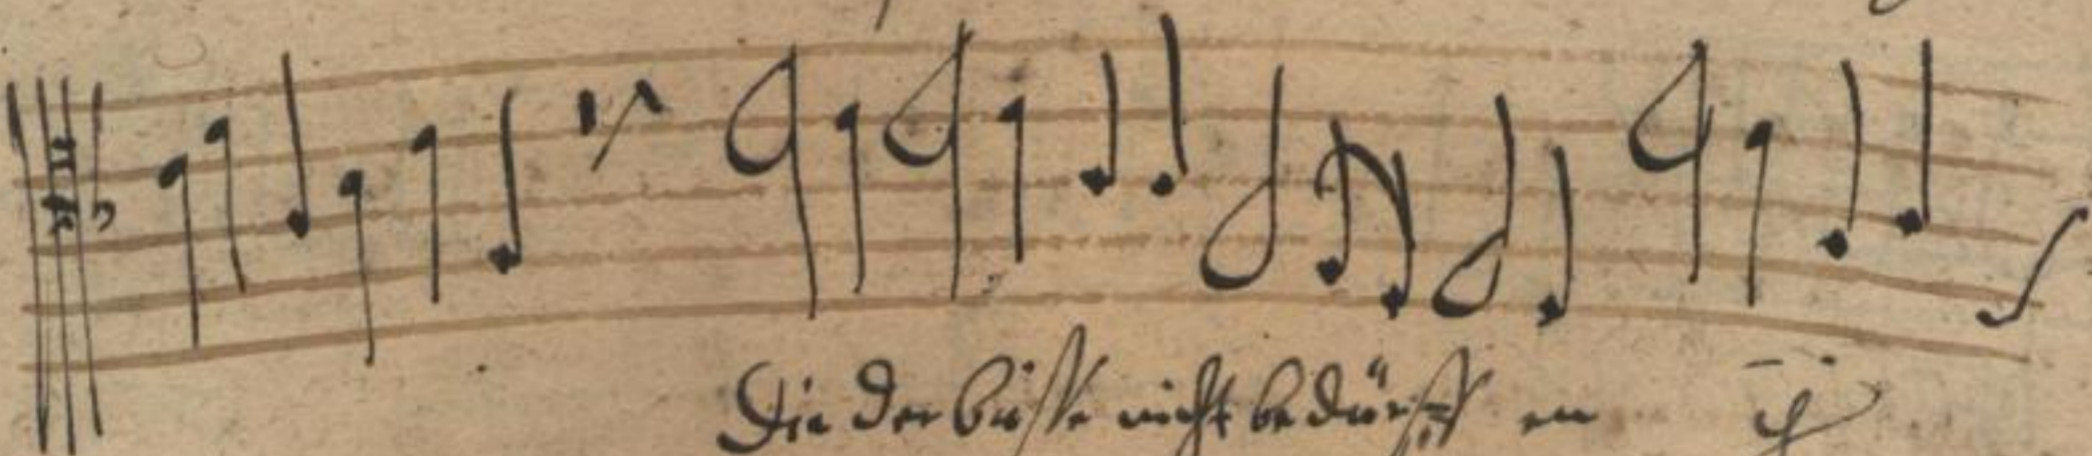 Die der busse nicht bedürffen ij